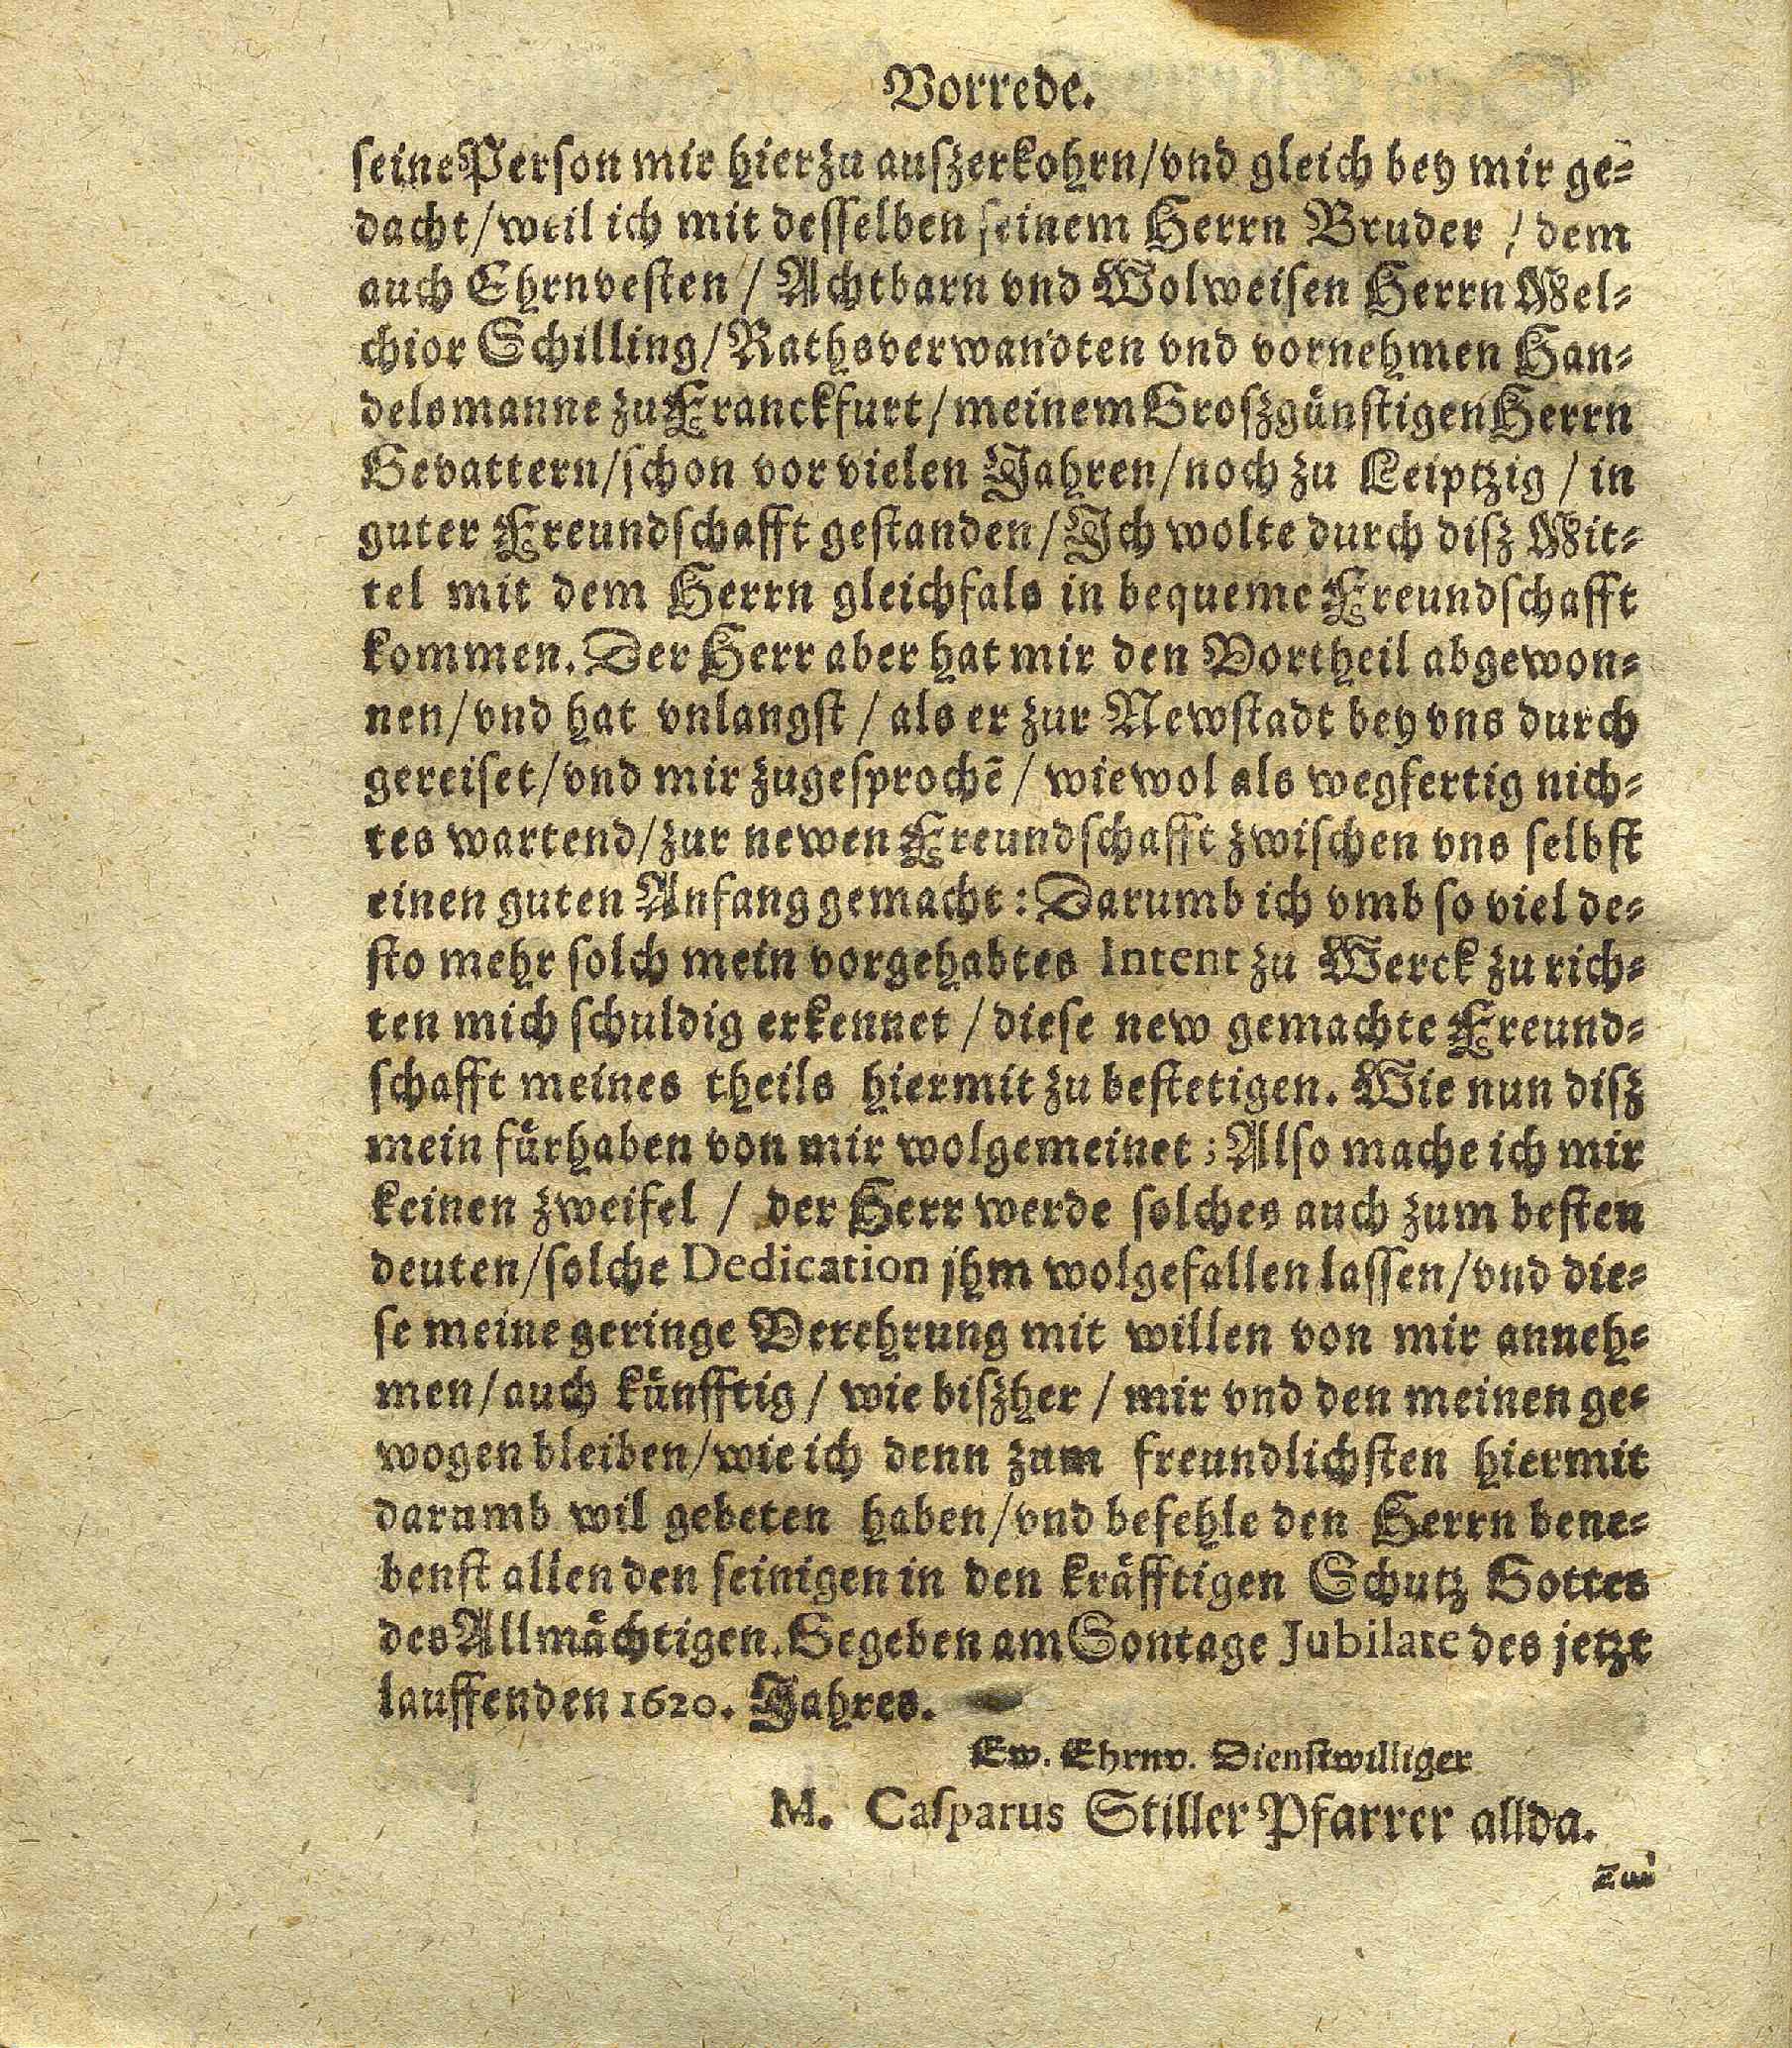 Vorrede.
seine Person mir hierzu auszerkohrn/vnd gleich bey mir ge-
dacht/weil ich mit desselben seinem Herrn Bruder / dem
auch Ehrnvesten / Achtbarn vnd Wolweisen Herrn Mel-
chior Schilling/Rathsverwandten vnd vornehmen Han-
delsmanne zu Franckfurt/meinem Groszgünstigen Herrn
Gevattern/schon vor vielen Jahren/noch zu Leiptzig / in
guter Freundschafft gestanden/Ich wolte durch disz Mit-
tel mit dem Herrn gleichfals in bequeme Freundschafft
kommen. Der Herr aber hat mir den Vortheil abgewon-
nen/vnd hat vnlangst / als er zur Newstadt bey vns durch
gereiset/vnd mir zugesprochē / wiewol als wegfertig nich-
tes wartend/zur newen Freundschafft zwischen vns selbst
einen guten Anfang gemacht: Darumb ich vmb so viel de-
sto mehr solch mein vorgehabtes Intent zu Werck zu rich-
ten mich schuldig erkennet / diese new gemachte Freund-
schafft meines theils hiermit zu bestetigen. Wie nun disz
mein fürhaben von mir wolgemeinet; Also mache ich mir
keinen zweifel / der Herr werde solches auch zum besten
deuten/solche Dedication jhm wolgefallen lassen/vnd die-
se meine geringe Verehrung mit willen von mir anneh-
men/auch künfftig / wie biszher / mir vnd den meinen ge-
wogen bleiben/wie ich denn zum freundlichsten hiermit
darumb wil gebeten haben/vnd befehle den Herrn bene-
benst allen den seinigen in den kräfftigen Schutz Gottes
des Allmächtigen. Gegeben am Sontage Jubilate des jetzt
lauffenden 1620. Jahres.
Ew. Ehrnv. Dienstwilliger
M. Casparus Stiller Pfarrer allda.